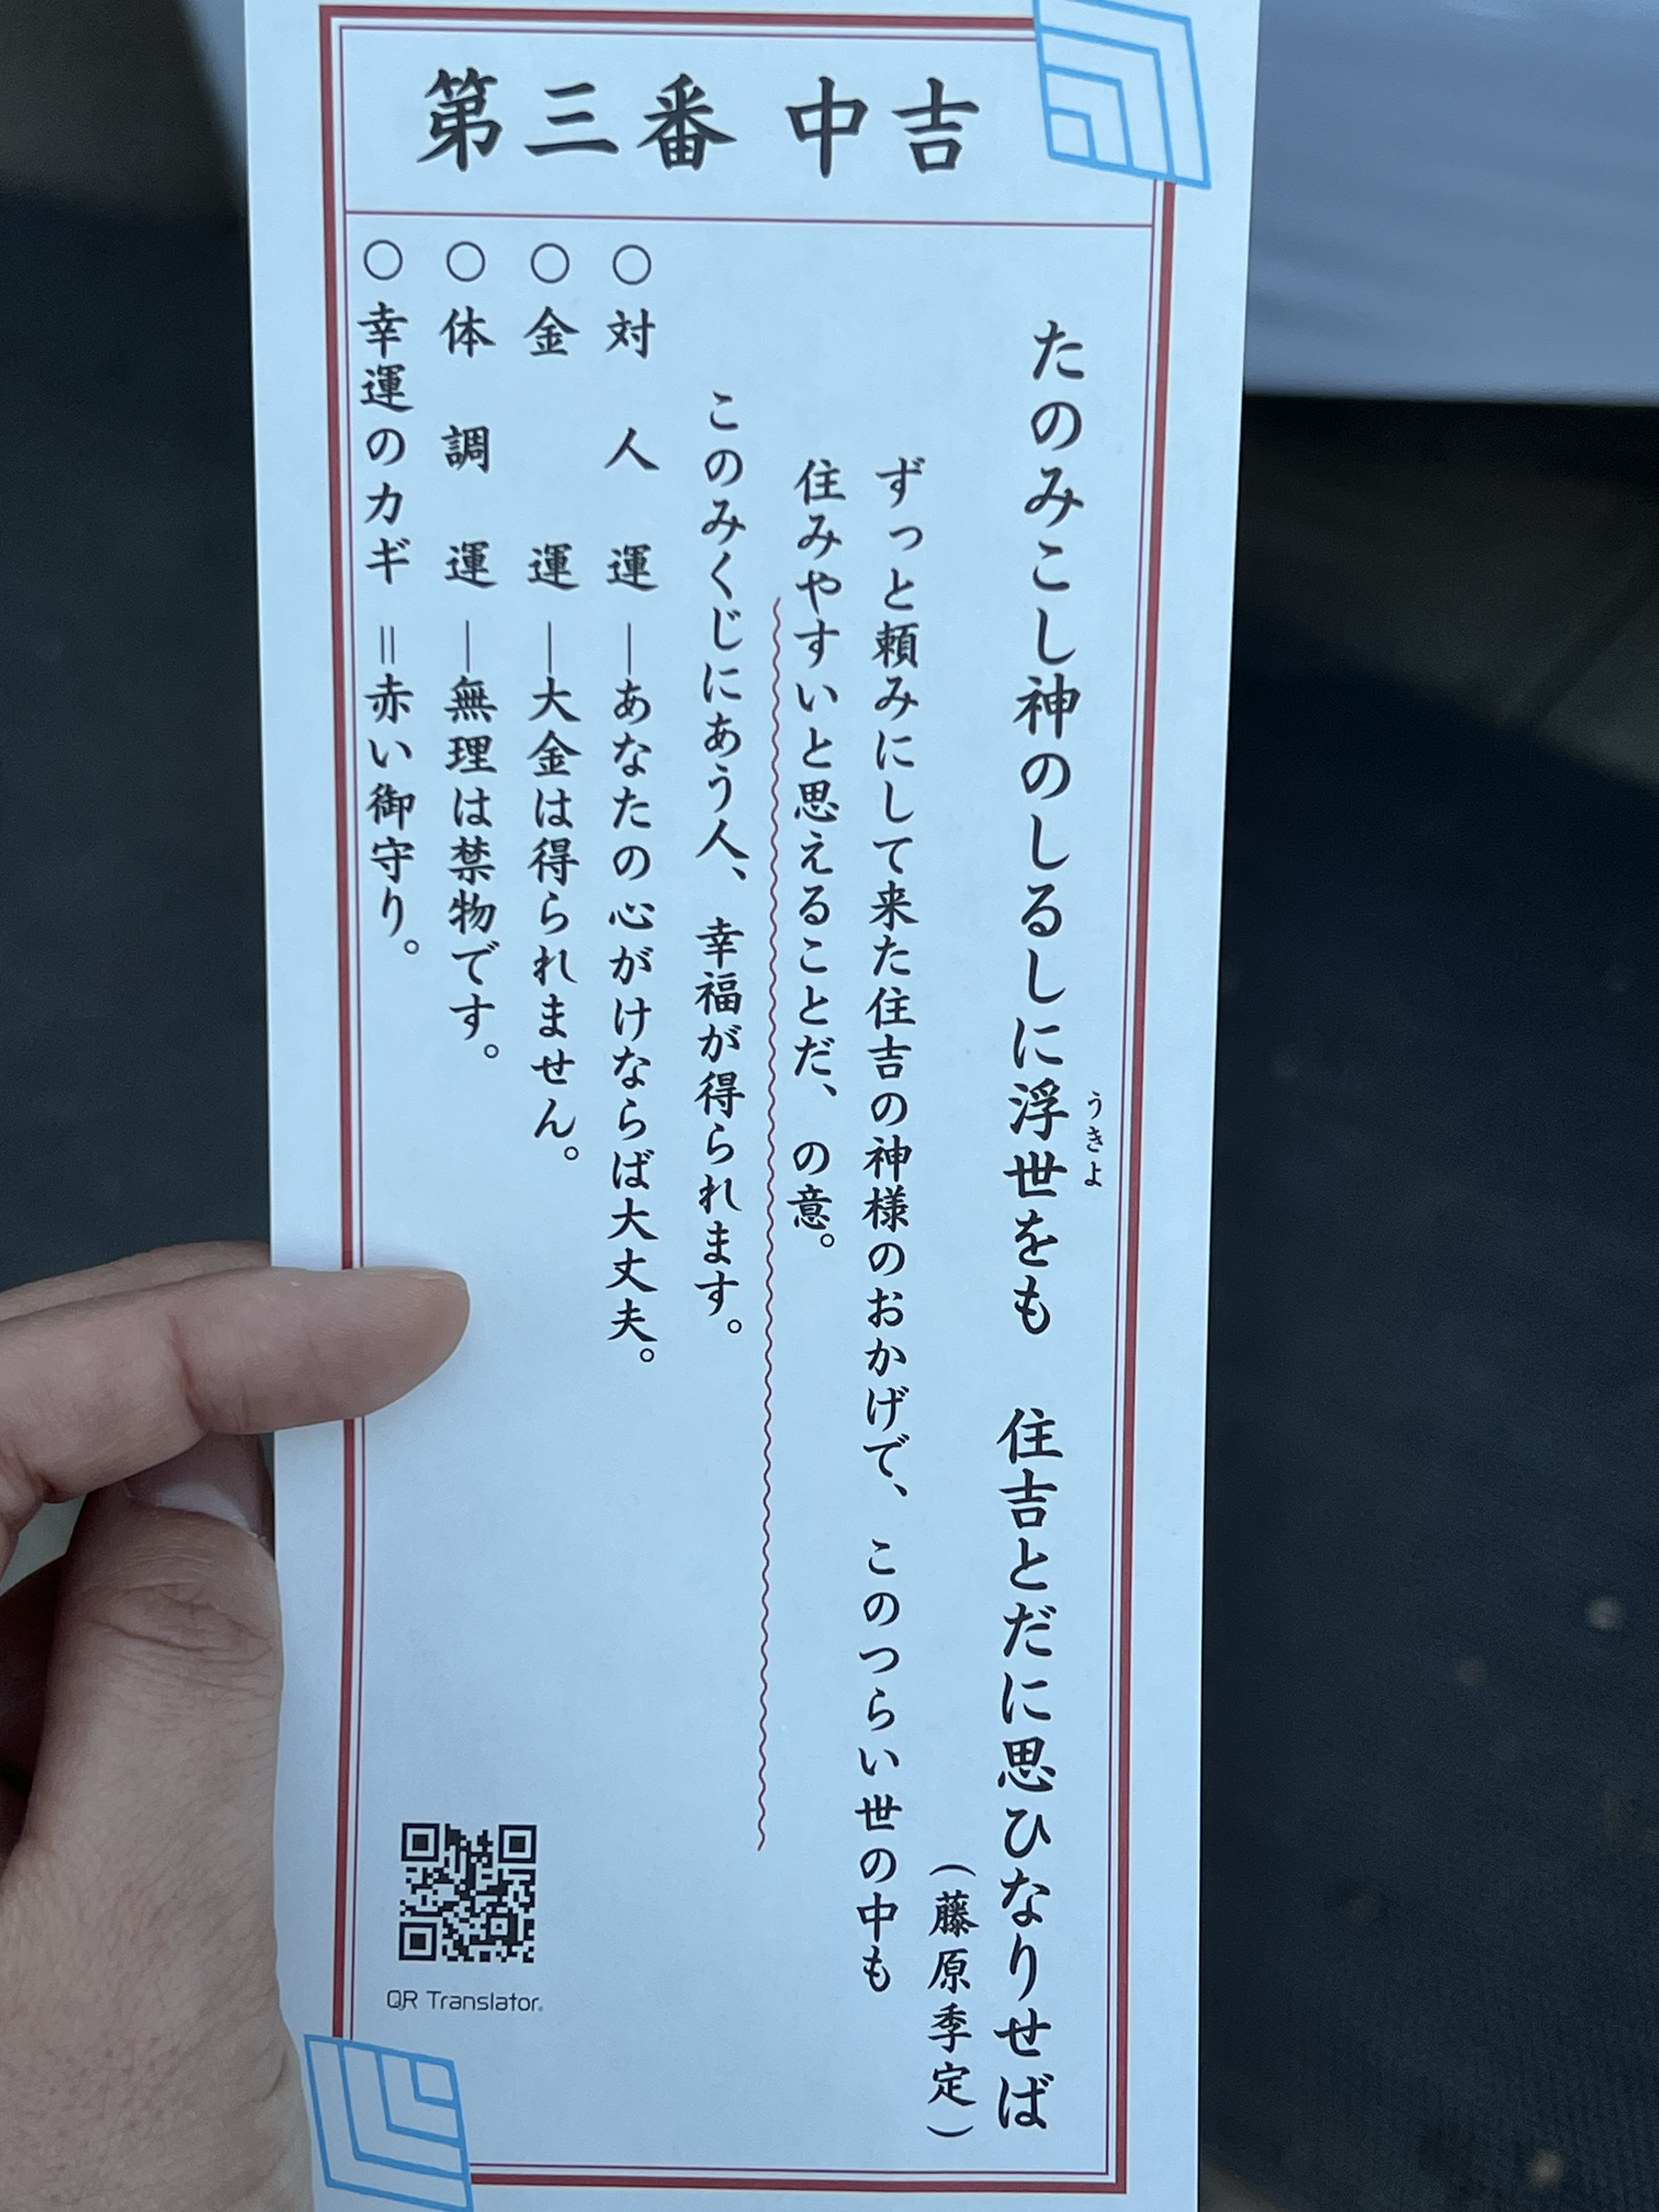 第三番 中吉
たのみこし神のしるしに浮世をも 住吉とだに思ひなりせば
うきよ
(藤原季定)
ずっと頼みにして来た住吉の神様のおかげで、このつらい世の中も
住みやすいと思えることだ、の意。
このみくじにあう人、幸福が得られます。
○対人運―あなたの心がけならば大丈夫。
○金運―大金は得られません。
○体調運―無理は禁物です。
○幸運のカギ=赤い御守り。
QR Translator